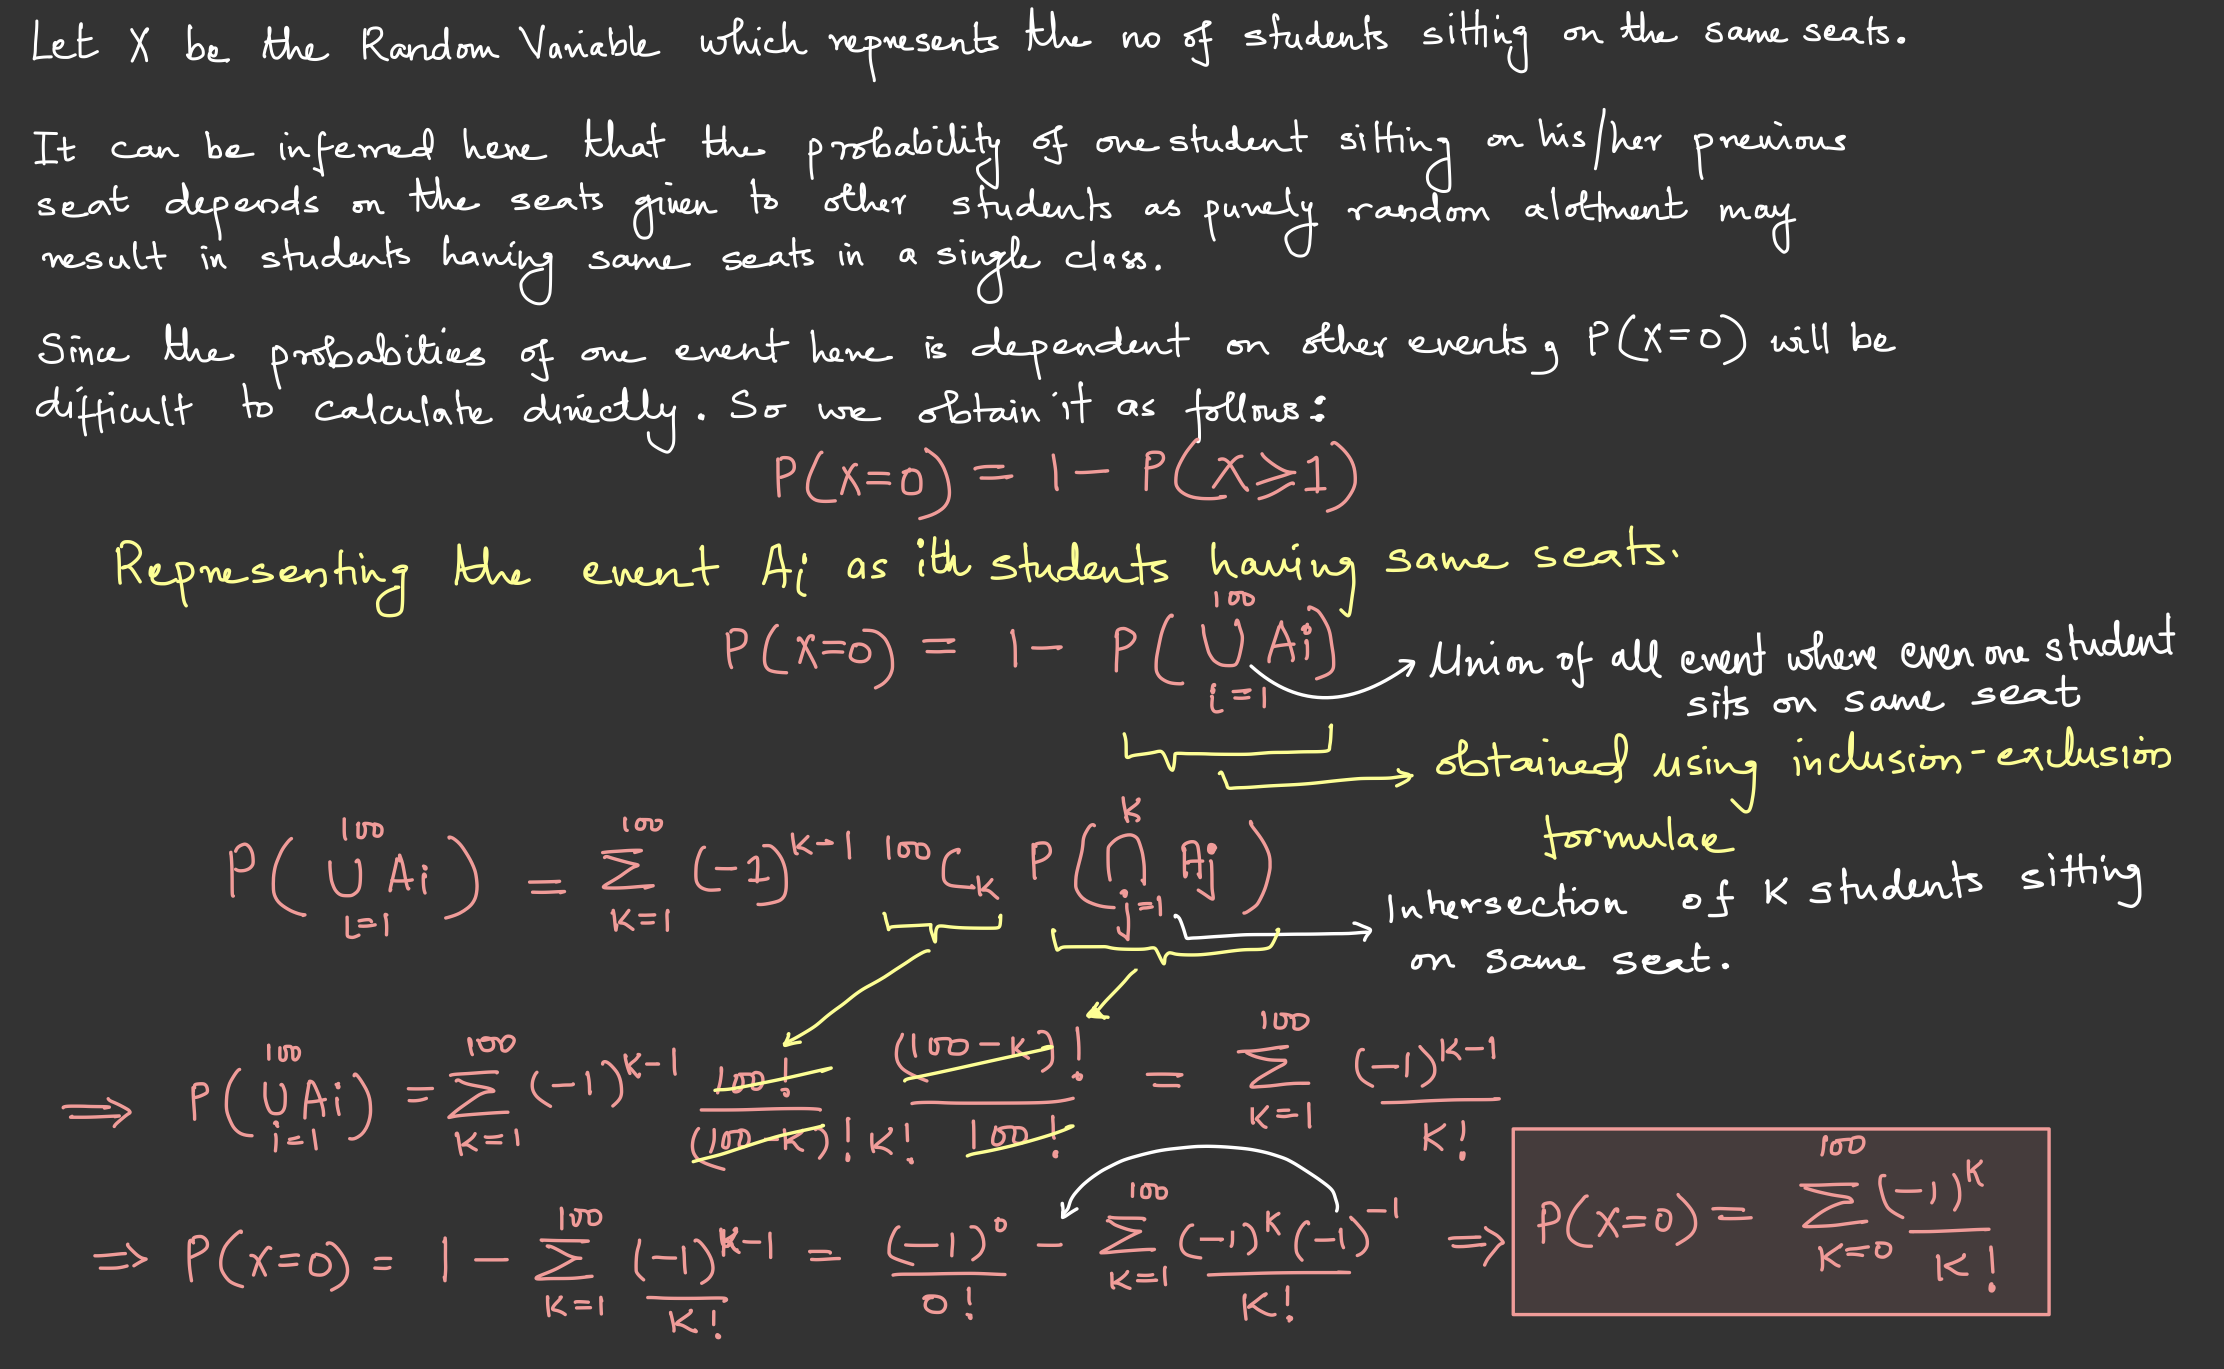 Let X be the Random Variable which represents the no of students sitting on the same seats.
It can be inferred here that the probability of one student sitting on his/her previous
seat depends on the seats given to other students as purely random alottment may
result in students having same seats in a single class.
Since the probabities of one event here is dependent on other events, P(X=0) will be
difficult to calculate directly. So we obtain it as follows:
P(X=0) = 1 - P(X⩾1)
Representing the event Ai as ith students having same seats.
P(X=0) = 1 - P(⋃_{i=1}^{100} Ai) → Union of all event where even one student
sits on same seat
→ obtained using inclusion-exclusion
formulae
P(⋃_{i=1}^{100} Ai) = Σ_{K=1}^{100} (-1)^{K-1} ^{100}C_K P(⋂_{j=1}^{K} Aj)
→ Intersection of K students sitting
on same seat.
⇒ P(⋃_{i=1}^{100} Ai) = Σ_{K=1}^{100} (-1)^{K-1} 100!/((100-K)! K!) (100-K)!/100! = Σ_{K=1}^{100} (-1)^{K-1}/K!
⇒ P(X=0) = 1 - Σ_{K=1}^{100} (-1)^{K-1}/K! = (-1)^0/0! - Σ_{K=1}^{100} (-1)^K (-1)^{-1}/K! ⇒ P(X=0) = Σ_{K=0}^{100} (-1)^K/K!